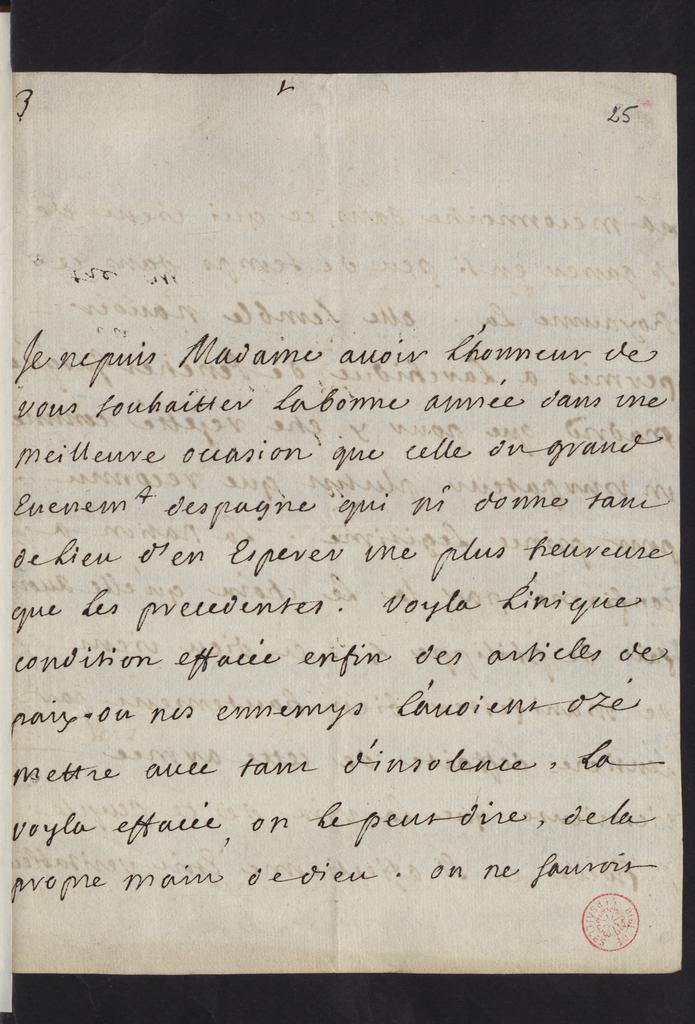 3
25
Je ne puis Madame avoir L'honneur de
vous souhaitter La bonne année dans une
meilleure occasion que celle du grand
Evenemt despagne qui ns donne tant
de Lieu d'en Esperer une plus heureuse
que Les precedentes. voyla L'inique
condition effacée enfin des articles de
paix. ou nos ennemys L'avoient ozé
mettre avec tant d'insolence, La
voyla effacée, on Le peut dire, de la
propre main de dieu. on ne sauroit
BIBL. DE VERSAILLES